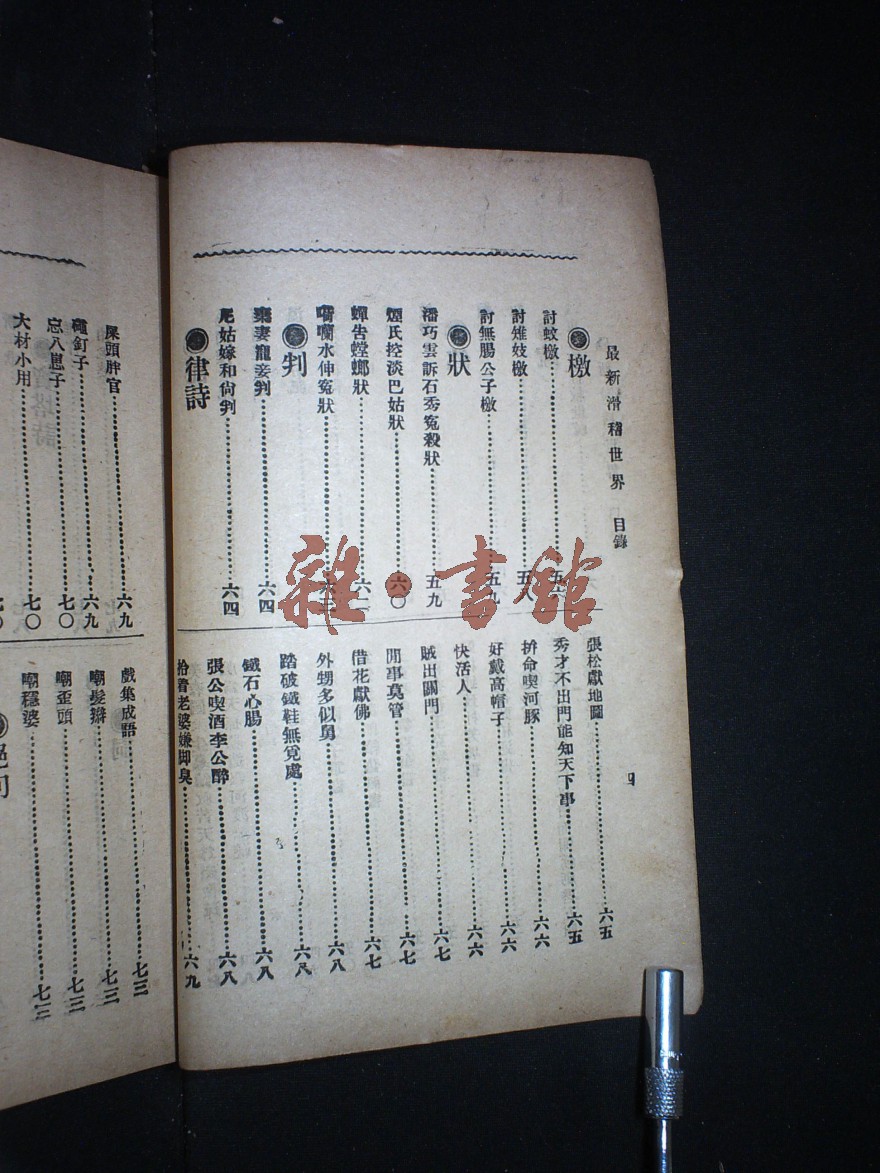 最新滑稽世界 目錄
四
檄
討蚊檄
討雉妓檄 五八
討無腸公子檄 五九
狀
潘巧雲訴石秀寃殺狀 五九
煙氏控淡巴姑狀 六〇
蟬告螳螂狀 六二
嗬囒水伸寃狀
判
棄妻寵妾判 六四
尼姑嫁和尙判 六四
律詩
張松獻地圖 六五
秀才不出門能知天下事 六五
拚命喫河豚 六六
好戴高帽子 六六
快活人 六六
賊出關門 六七
閒事莫管 六七
借花獻佛 六七
外甥多似舅 六八
踏破鐵鞋無覓處 六八
鐵石心腸 六八
張公喫酒李公醉 六八
拾着老婆嫌脚臭 六九
屎頭胖官 六九
碰釘子 六九
忘八崽子 七〇
大材小用 七〇
戲集成語 七三
嘲髮辮 七三
嘲歪頭 七三
嘲穩婆 七三
絕句
雜·書館